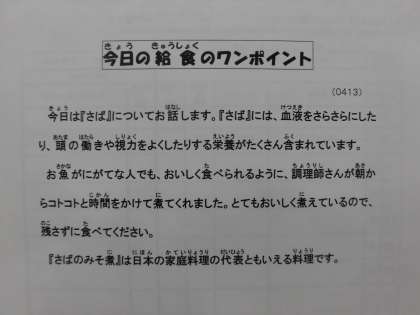 今日の給食のワンポイント
(0413)
今日は『さば』についてお話します。『さば』には、血液をさらさらにした
り、頭の働きや視力をよくしたりする栄養がたくさん含まれています。
お魚がにがてな人でも、おいしく食べられるように、調理師さんが朝か
らコトコトと時間をかけて煮てくれました。とてもおいしく煮えているので、
残さずに食べてください。
『さばのみそ煮』は日本の家庭料理の代表ともいえる料理です。